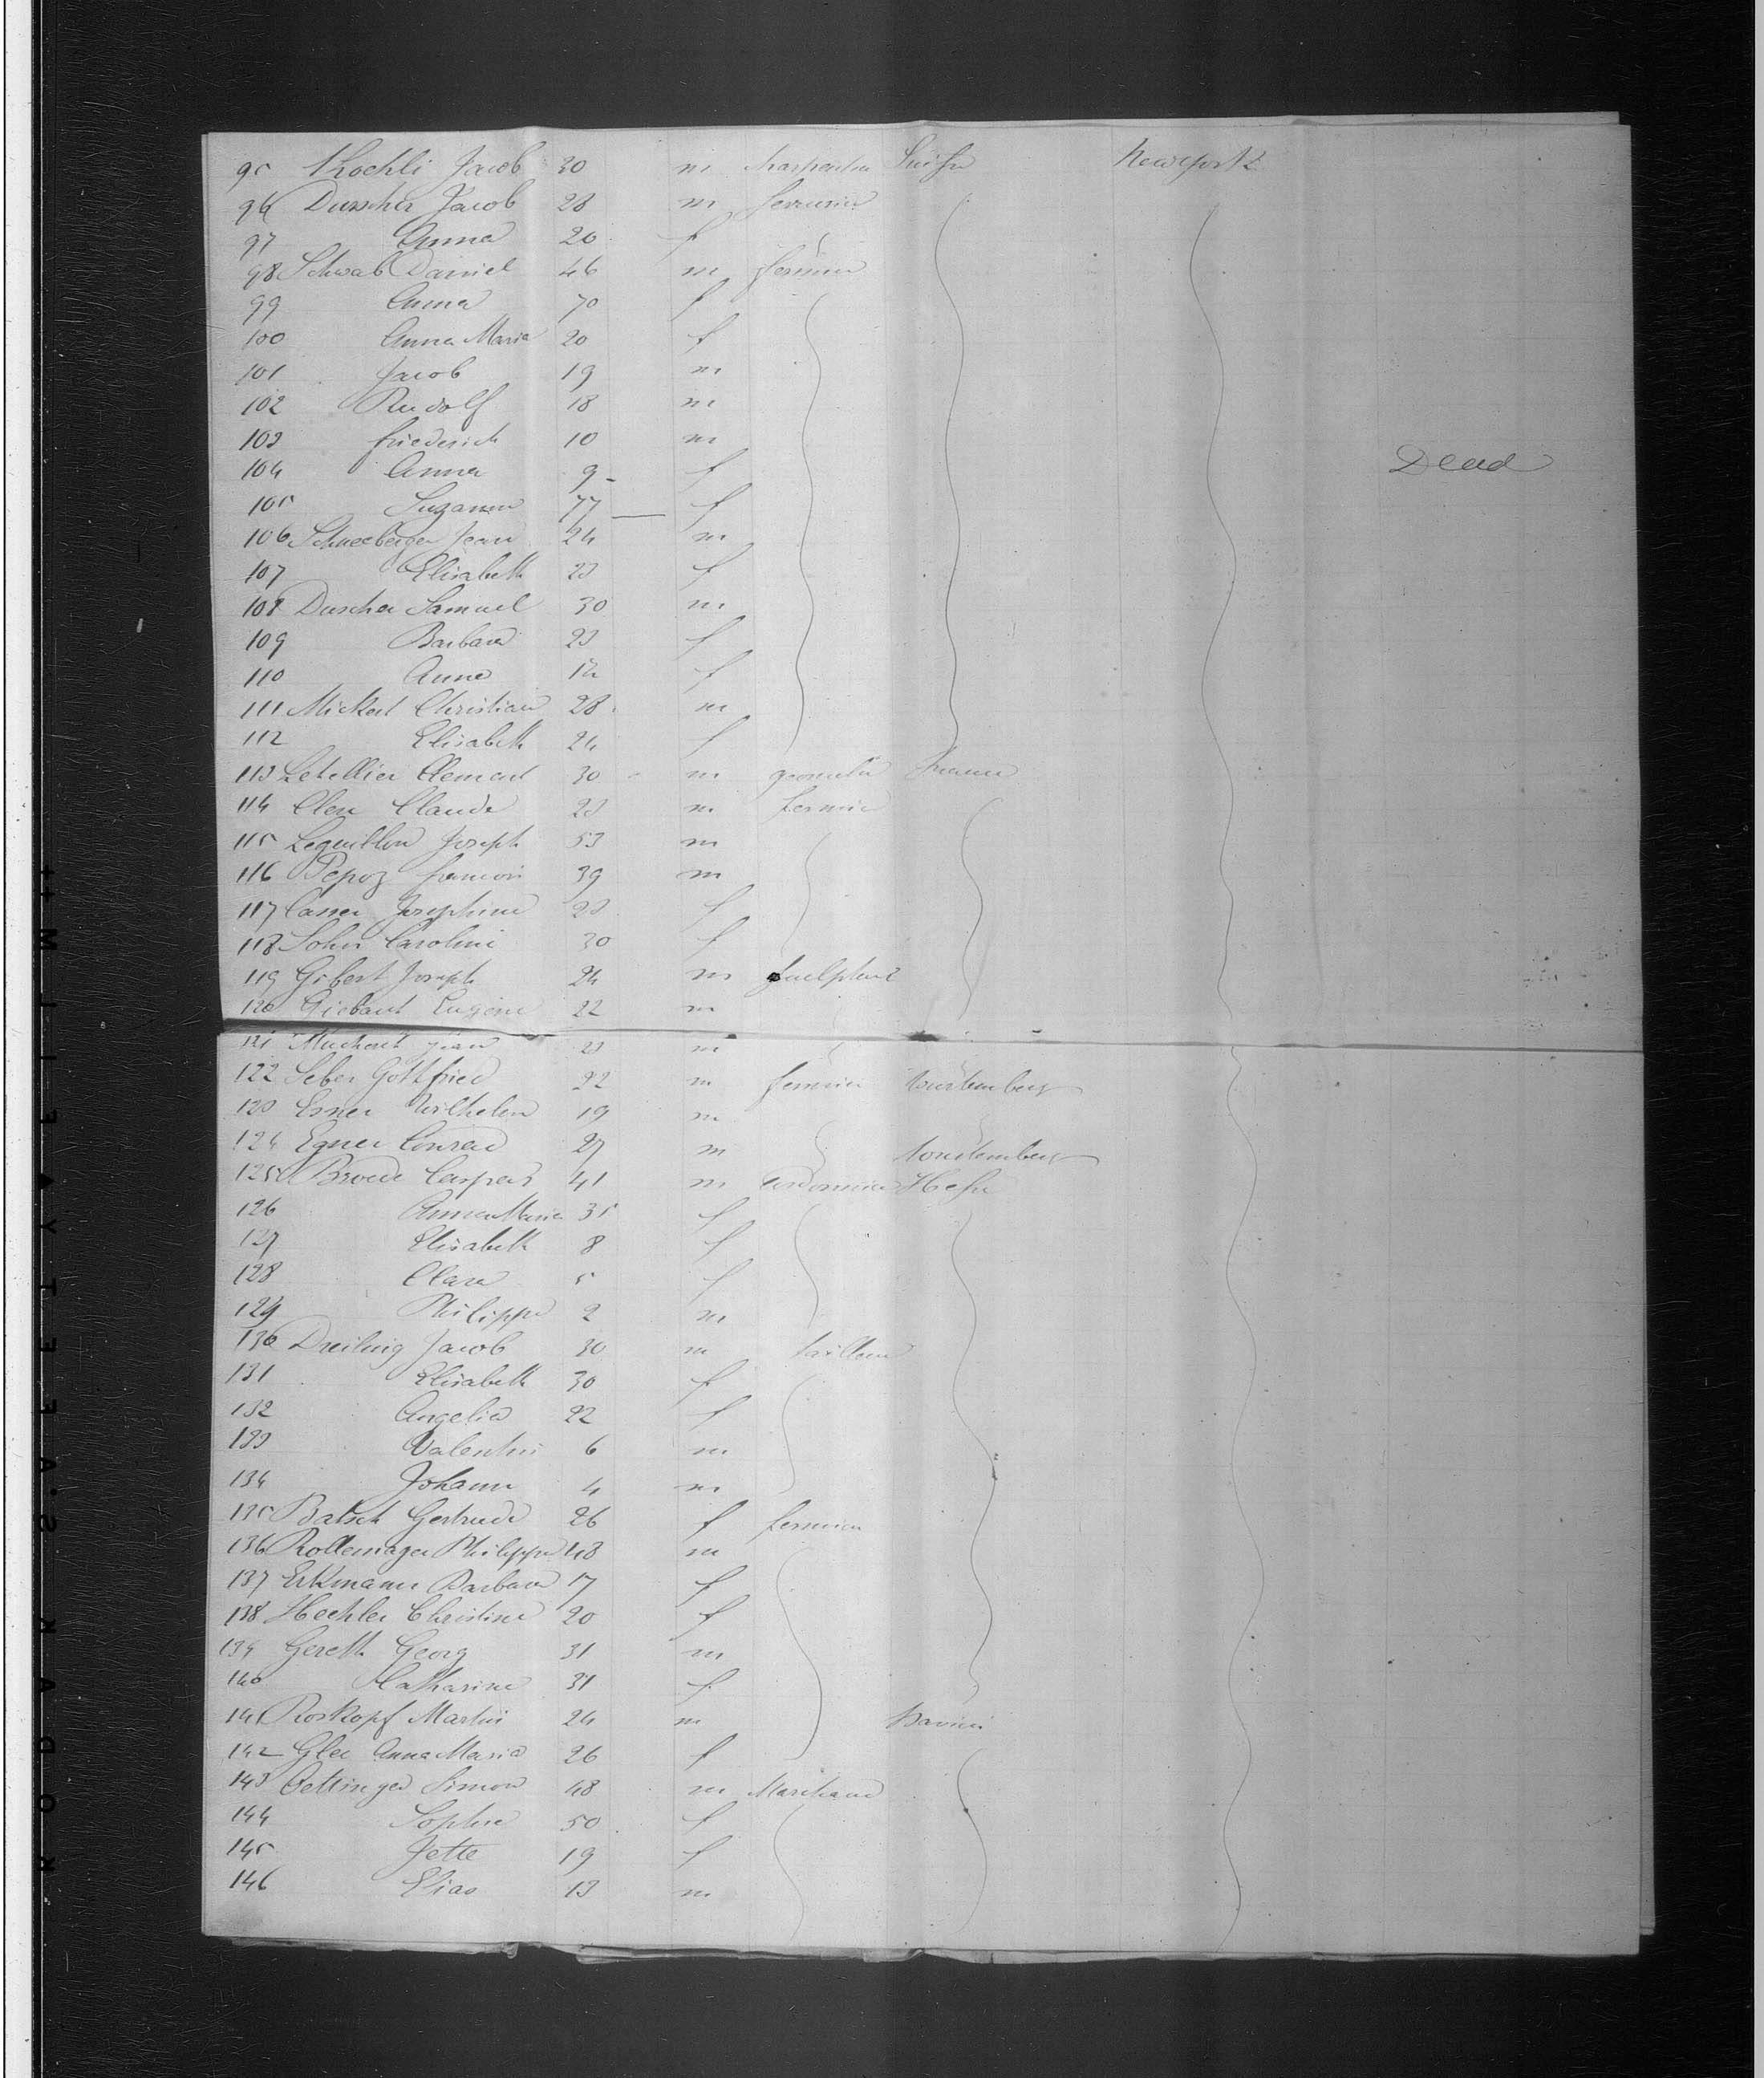 95 Kochli Jacob 30 m charpentier Suisse New York
96 Duscher Jacob 28 m serrurier
97 Anna 20 f
98 Schwab Daniel 46 m fermier
99 Anna 70 f
100 Anna Maria 20 f
101 Jacob 19 m
102 Rudolf 18 m
103 friederich 10 m
104 Anna 9 f Dead
105 Suzanna 77 f
106 Schneeberger Jean 24 m
107 Elisabeth 23 f
108 Duscher Samuel 30 m
109 Barbara 23 f
110 Anna f
111 Christian 28 m
112 Elisabeth 24 f
113 Letellier Clement 30 m geometre france
114 Claude 23 m fermier
115 Leguillon Joseph 53 m
116 Pepoz francois 39 m
117 Josephine 23 f
118 Sohn Caroline 30 f
119 Gibert Joseph 24 m sculpteur
120 Eugene 22 m
121 Jean 23 m
122 Seber Gottfried 22 m fermier Wurtemberg
123 Wilhelm 19 m
124 Egner Conrad 27 m Wurtemberg
125 Caspar 41 m cordonnier Hesse
126 Anna Maria 35 f
127 Elisabeth 8 f
128 Clara 5 f
129 Philippe 2 m
130 Dreiling Jacob 30 m tailleur
131 Elisabeth 30 f
132 Angelia 22 f
133 Valentin 6 m
134 Johann 4 m
135 Batsch Gertrude 26 f fermier
136 Philippe 48 m
137 Erkmann Barbara 17 f
138 Hechler Christine 20 f
139 Gereth Georg 31 m
140 Catharine 31 f
141 Roskopf Martin 24 m Baviere
142 Glee Anna Maria 26 f
143 Oettinger Simon 48 m Marchand
144 Sophie 50 f
145 Jette 19 f
146 Elias 13 m